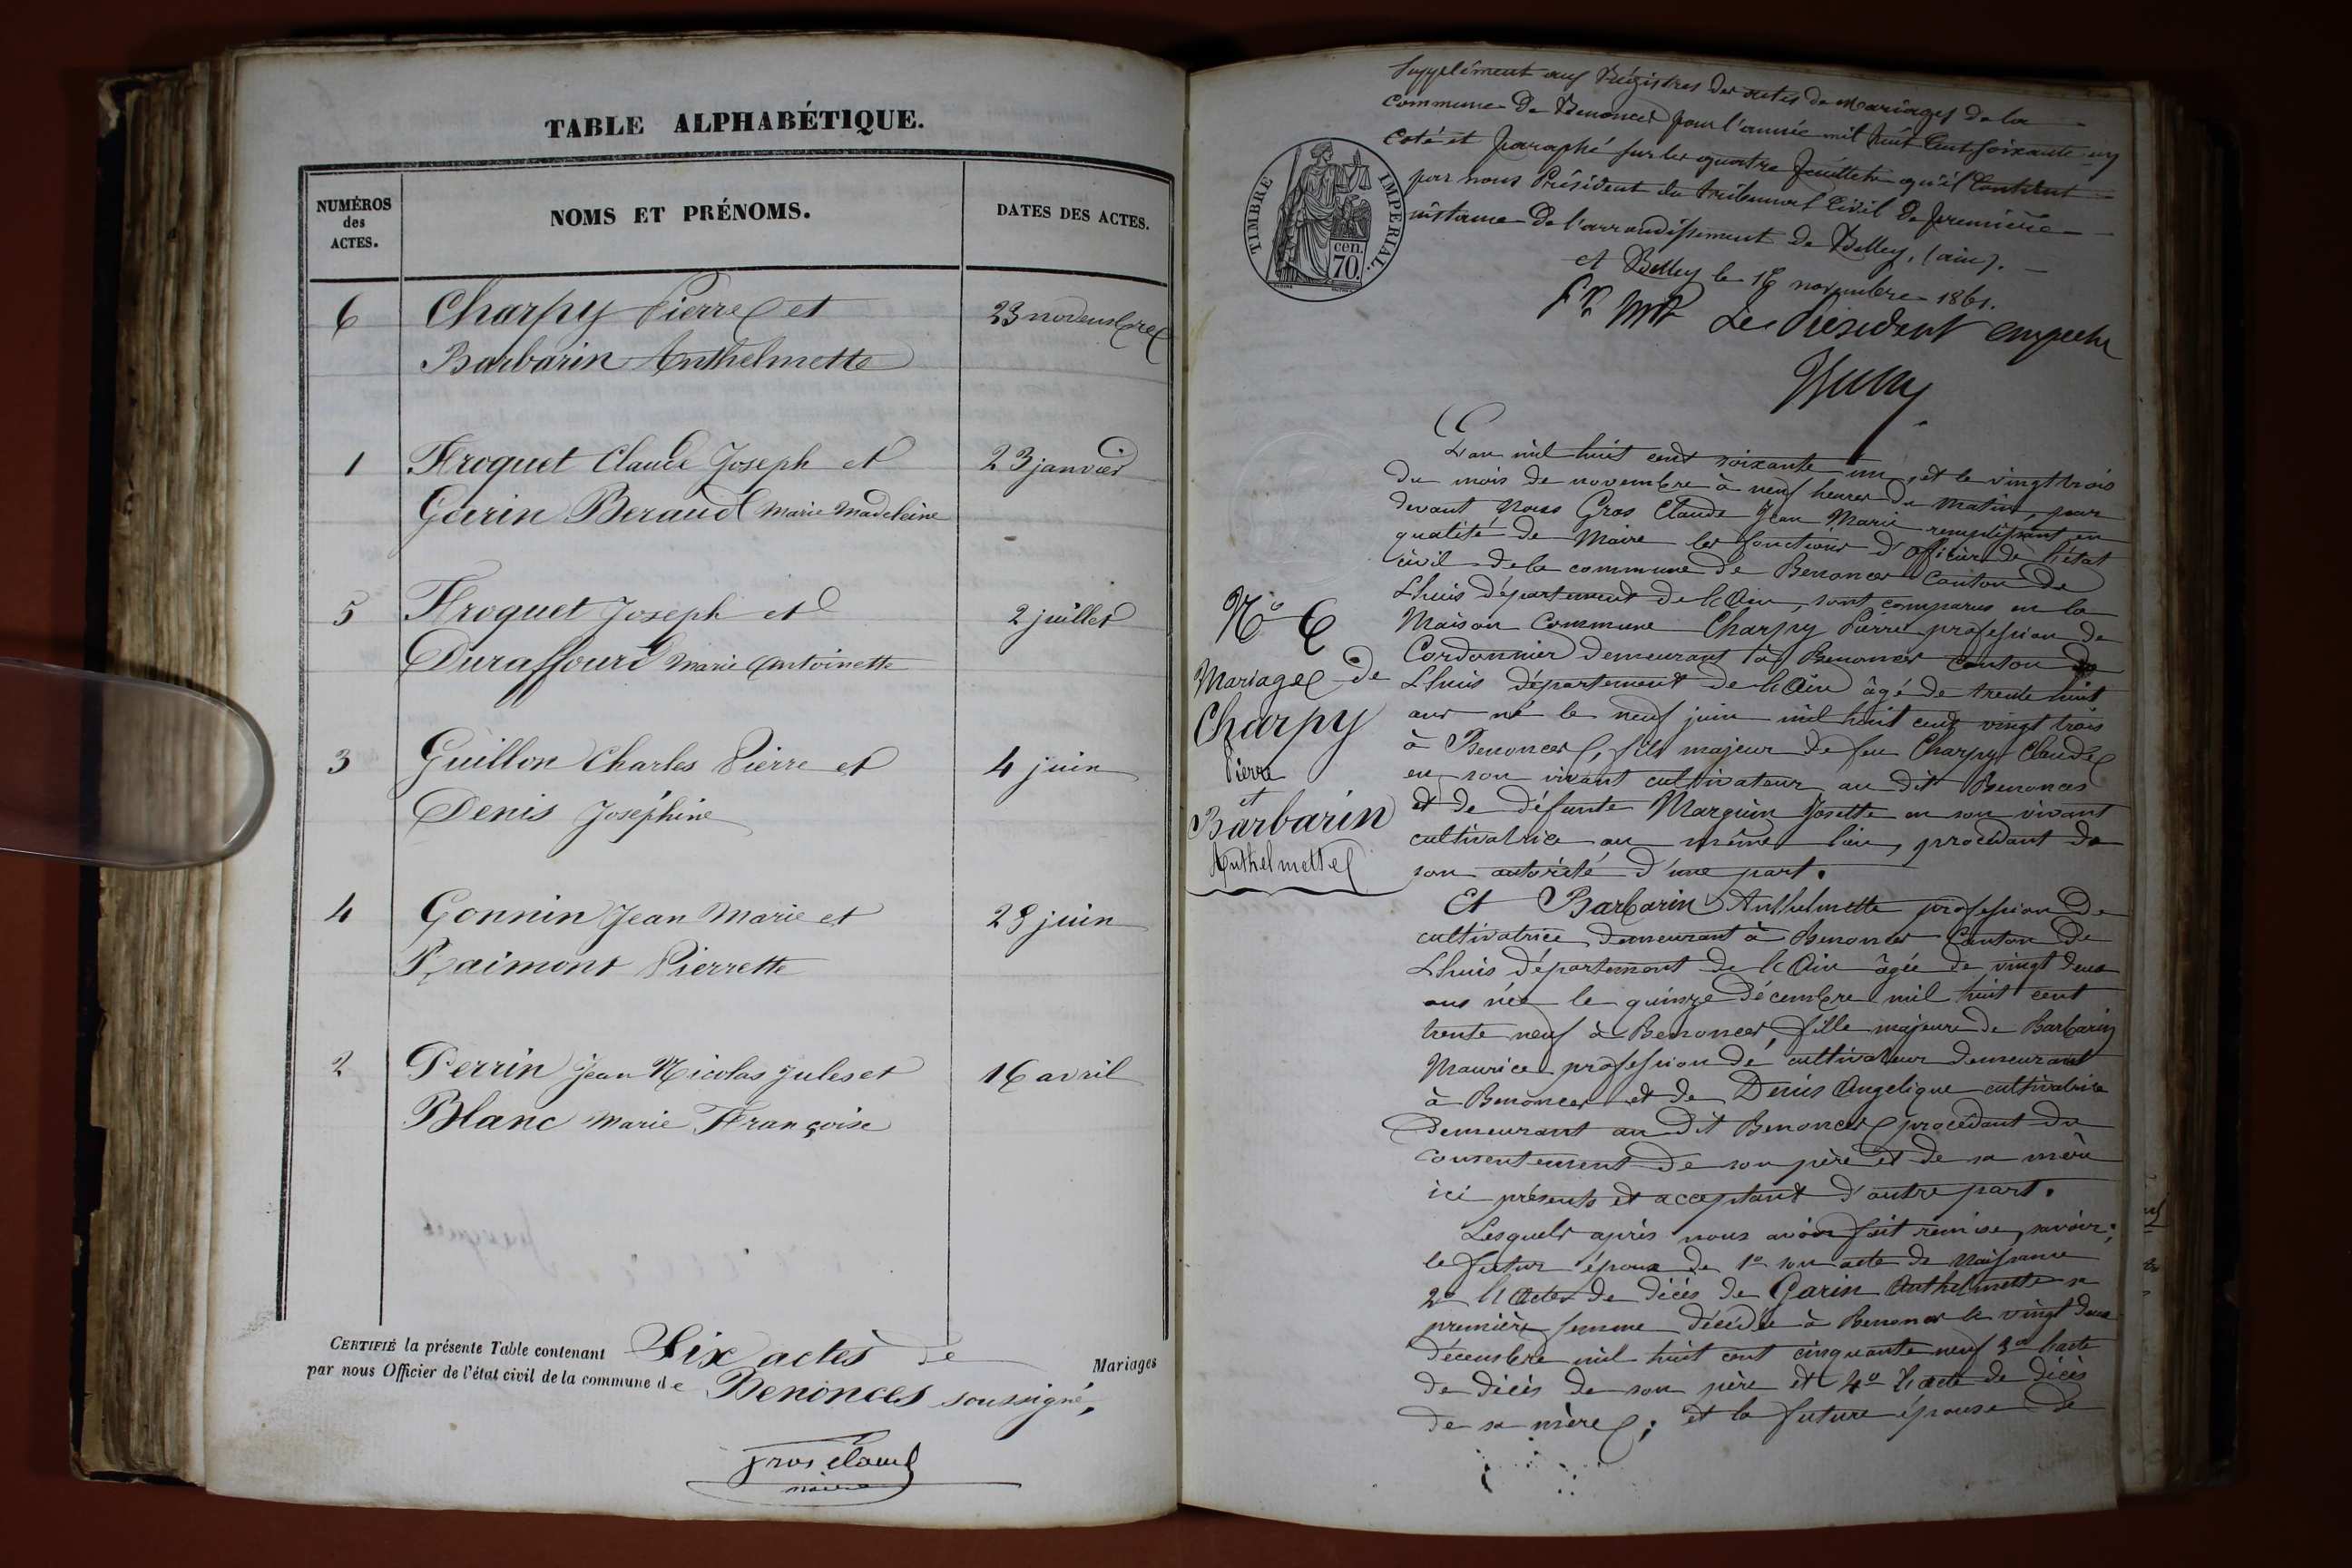 TABLE ALPHABÉTIQUE.
NUMÉROS
des
ACTES.
NOMS ET PRÉNOMS.
DATES DES ACTES.
6 Charpy Pierre et 23 novembre
Barbarin Anthelmette
1 Froquet Claude Joseph et 23 janvier
Guerin Beraud Marie Madeleine
5 Froquet Joseph et 2 juillet
Duraffourd Marie Antoinette
3 Guillon Charles Pierre et 4 juin
Denis Joséphine
4 Gonnin Jean Marie et juin
Raimont Pierrette
2 Perrin Jean Nicolas Jules et 16 avril
Blanc Marie Françoise
CERTIFIÉ la présente Table contenant Six actes de Mariages
par nous Officier de l'état civil de la commune de Benonces soussigné,
Gros Claude
maire
Supplément aux Régistres des actes de Mariages de la
commune de Benonces pour l'année mil huit cent soixante un
coté et paraphé sur les quatre feuillets qu'il contient
par nous Président du tribunal civil de première
instance de l'arrondissement de Belley, (ain).
A Belley le novembre 1861.
Le Président empeché
TIMBRE IMPERIAL.
cen.
70.
L'an mil huit cent soixante un, et le vingt trois
du mois de novembre à neuf heures du matin, par
devant nous Gros Claude Jean Marie remplissant en
qualité de Maire les fonctions d'officier de l'état
civil de la commune de Benonces canton de
Lhuis département de l'Ain, sont comparus en la
Maison Commune Charpy Pierre profession de
Cordonnier demeurant à Benonces canton de
Lhuis département de l'Ain âgé de trente huit
ans né le neuf juin mil huit cent vingt trois
à Benonces, fils majeur de feu Charpy Claude
en son vivant cultivateur au dit Benonces
et de défunte Marguin Josette en son vivant
cultivatrice au même lieu, procédant de
son autorité d'une part.
N° 6
Mariage de
Charpy
Pierre
et
Barbarin
Anthelmette
Et Barbarin Anthelmette profession de
cultivatrice demeurant à Benonces Canton de
Lhuis département de l'Ain âgée de vingt deux
ans née le quinze décembre mil huit cent
trente neuf à Benonces, fille majeure de Barbarin
Maurice profession de cultivateur demeurant
à Benonces et de Denis Angelique cultivatrice
demeurant au dit Benonces procédant du
consentement de son père et de sa mère
ici présents et acceptant d'autre part.
Lesquels après nous avoir fait remise, savoir;
le futur époux de 1° son acte de naissance
2° l'Acte de décès de Garin Anthelmette sa
première femme décédée à Benonces le vingt deux
décembre mil huit cent cinquante neuf 3° l'acte
de décès de son père et 4° l'acte de décès
de sa mère; et la future épouse de